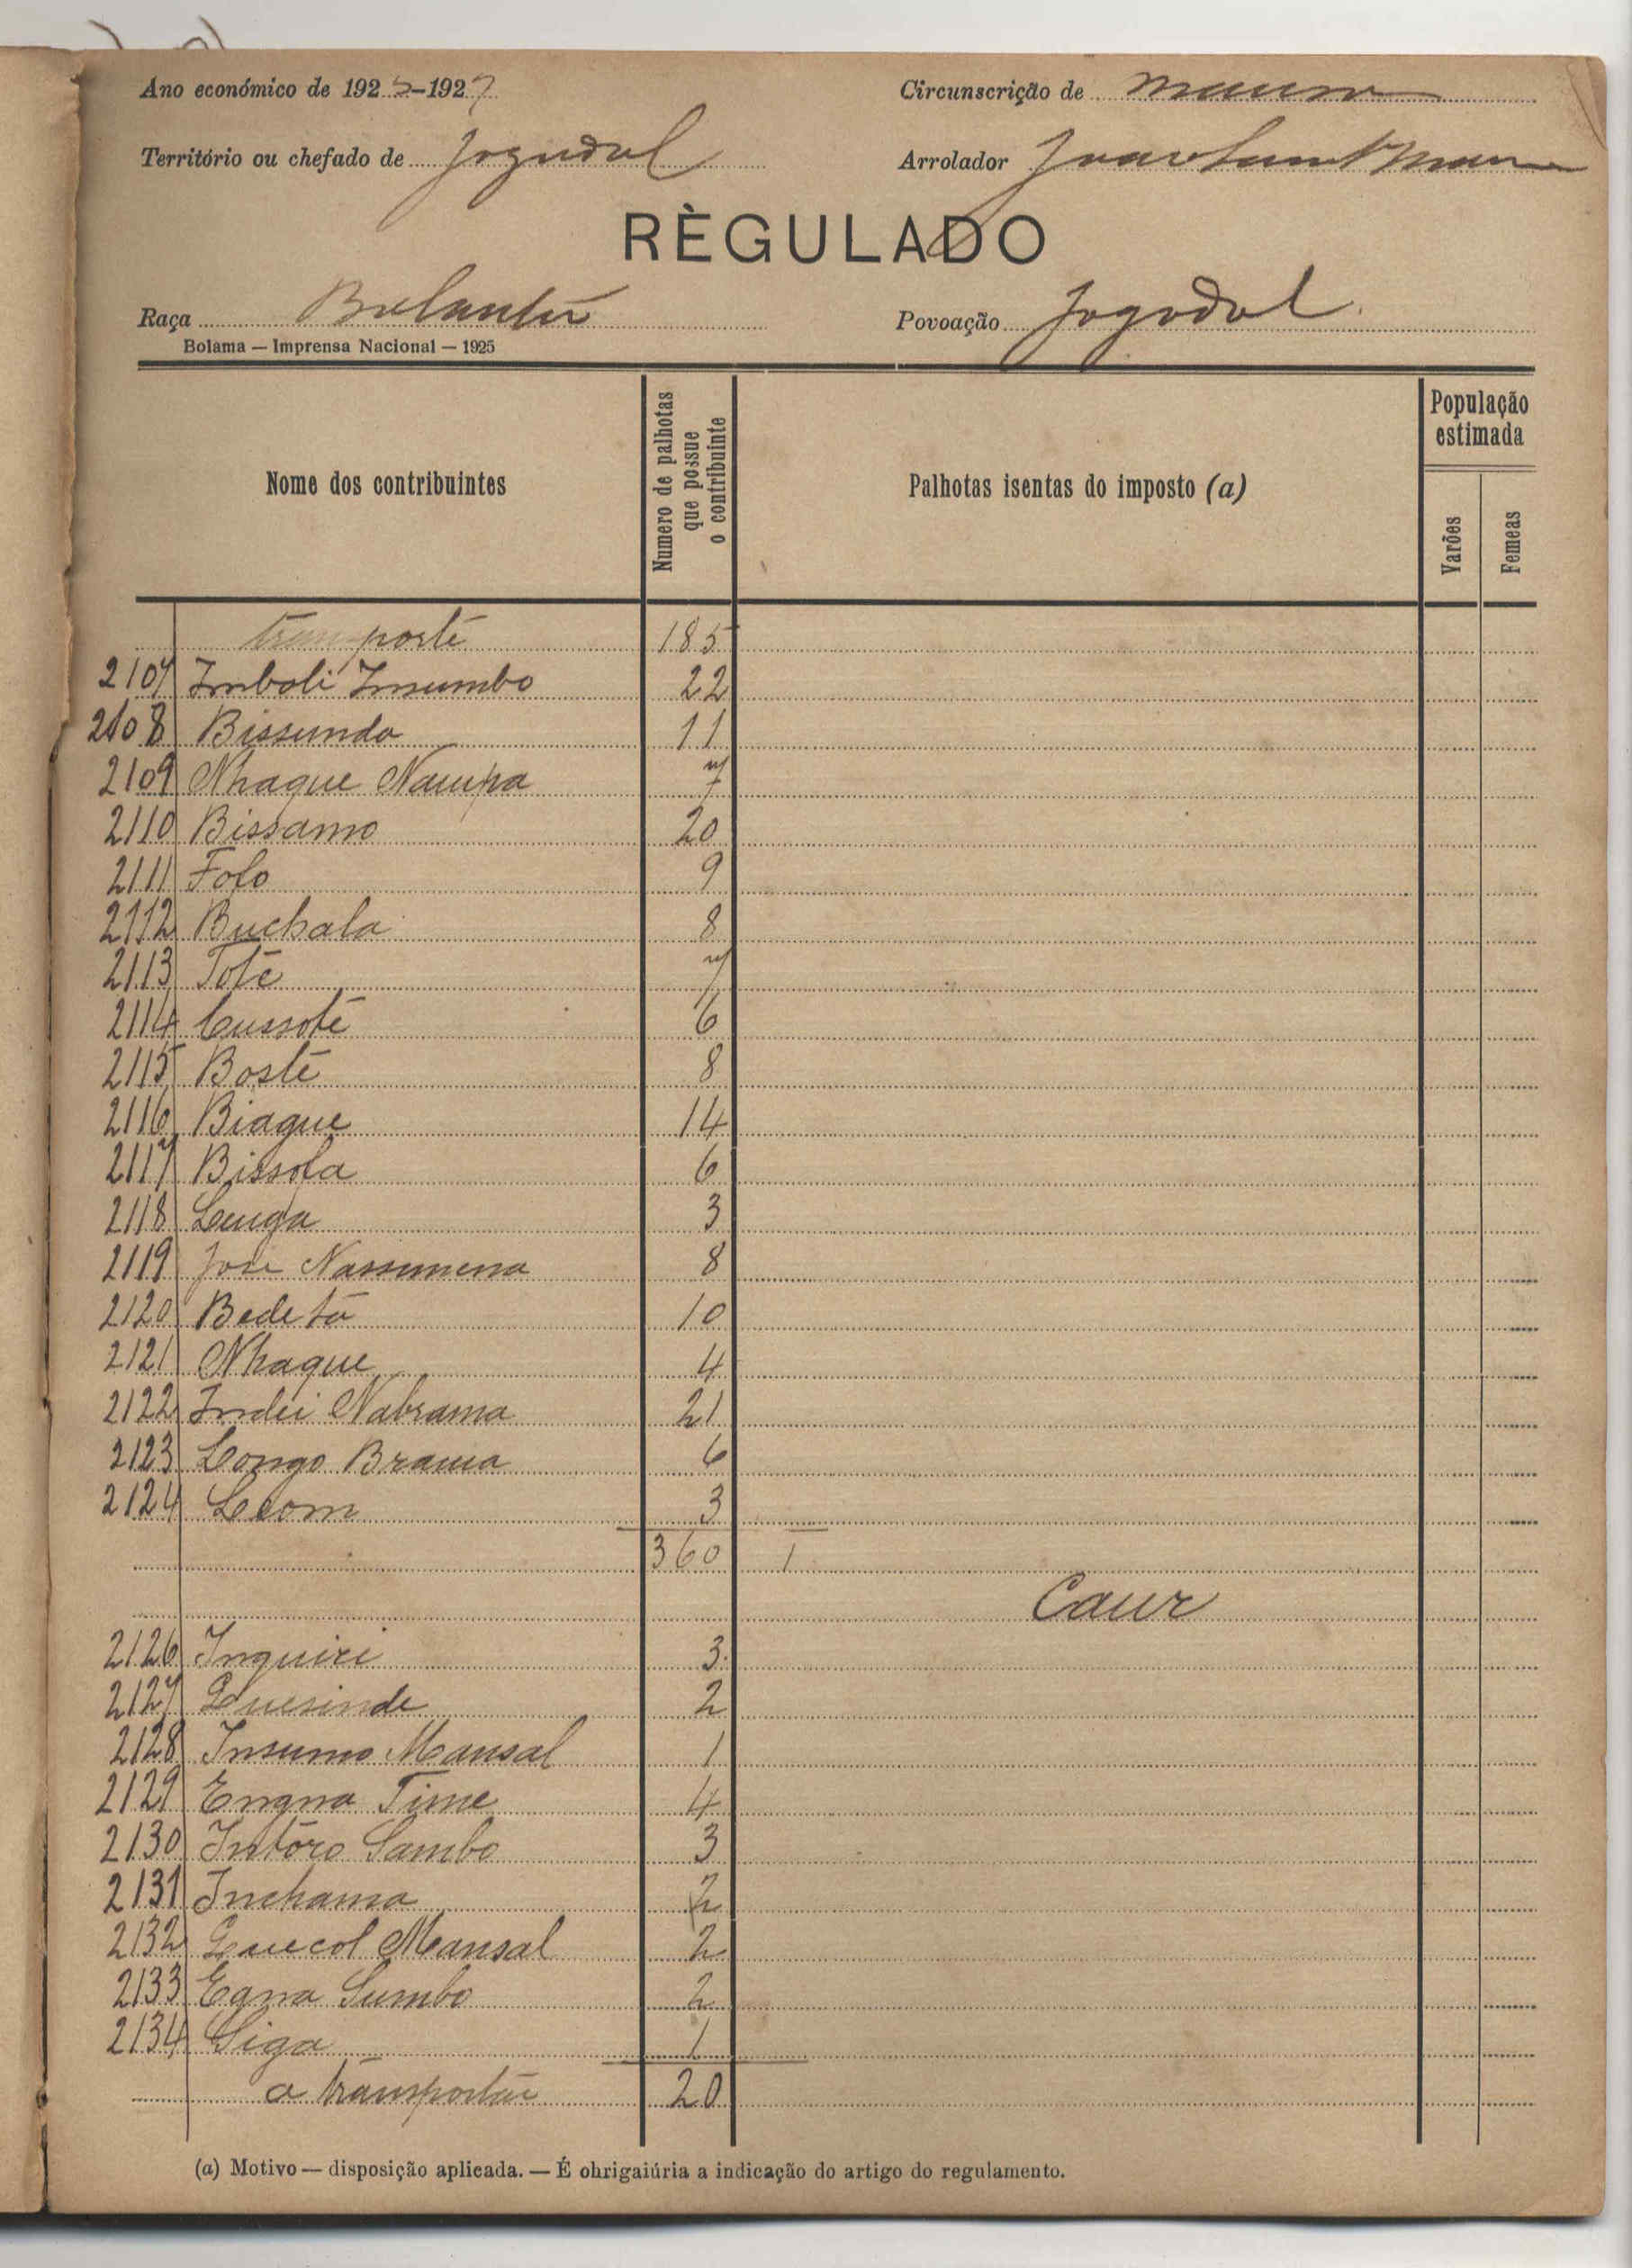 Ano económico de 192 -1927
Circunscrição de
Território ou chefado de Jogudul
Arrolador
RÈGULADO
Raça Balanta
Povoação Jogodul
Bolama — Imprensa Nacional — 1925
Nome dos contribuintes
Numero de palhotas que possue o contribuinte
Palhotas isentas do imposto (a)
População estimada
Varões
Femeas
transporte 185
2107 Imboli Insumbo 22
2108 Bissunda 11
2109 Nhaque Naupa 7
2110 Bissamo 20
2111 Folo 9
2112 Buchala 8
2113 Toté 7
2114 Cussoté 6
2115 Bosté 8
2116 Biague 14
2117 Bissola 6
2118 Lenga 3
2119 José Nassumena 8
2120 Bedeta 10
2121 Nhaque 4
2122 Indii Nabrama 21
2123 Longo Brama 6
2124 Leom 3
360 1
Caur
2126 Inquiri 3
2127 Quesinde 2
2128 Insumo Mansal 1
2129 Engna Time 4
2130 Intoro Sambo 3
2131 Inchama 2
2132 Quecol Mansal 2
2133 Egna Sumbo 2
2134 Siga 1
a transportar 20
(a) Motivo — disposição aplicada. — É ohrigaiúria a indicação do artigo do regulamento.